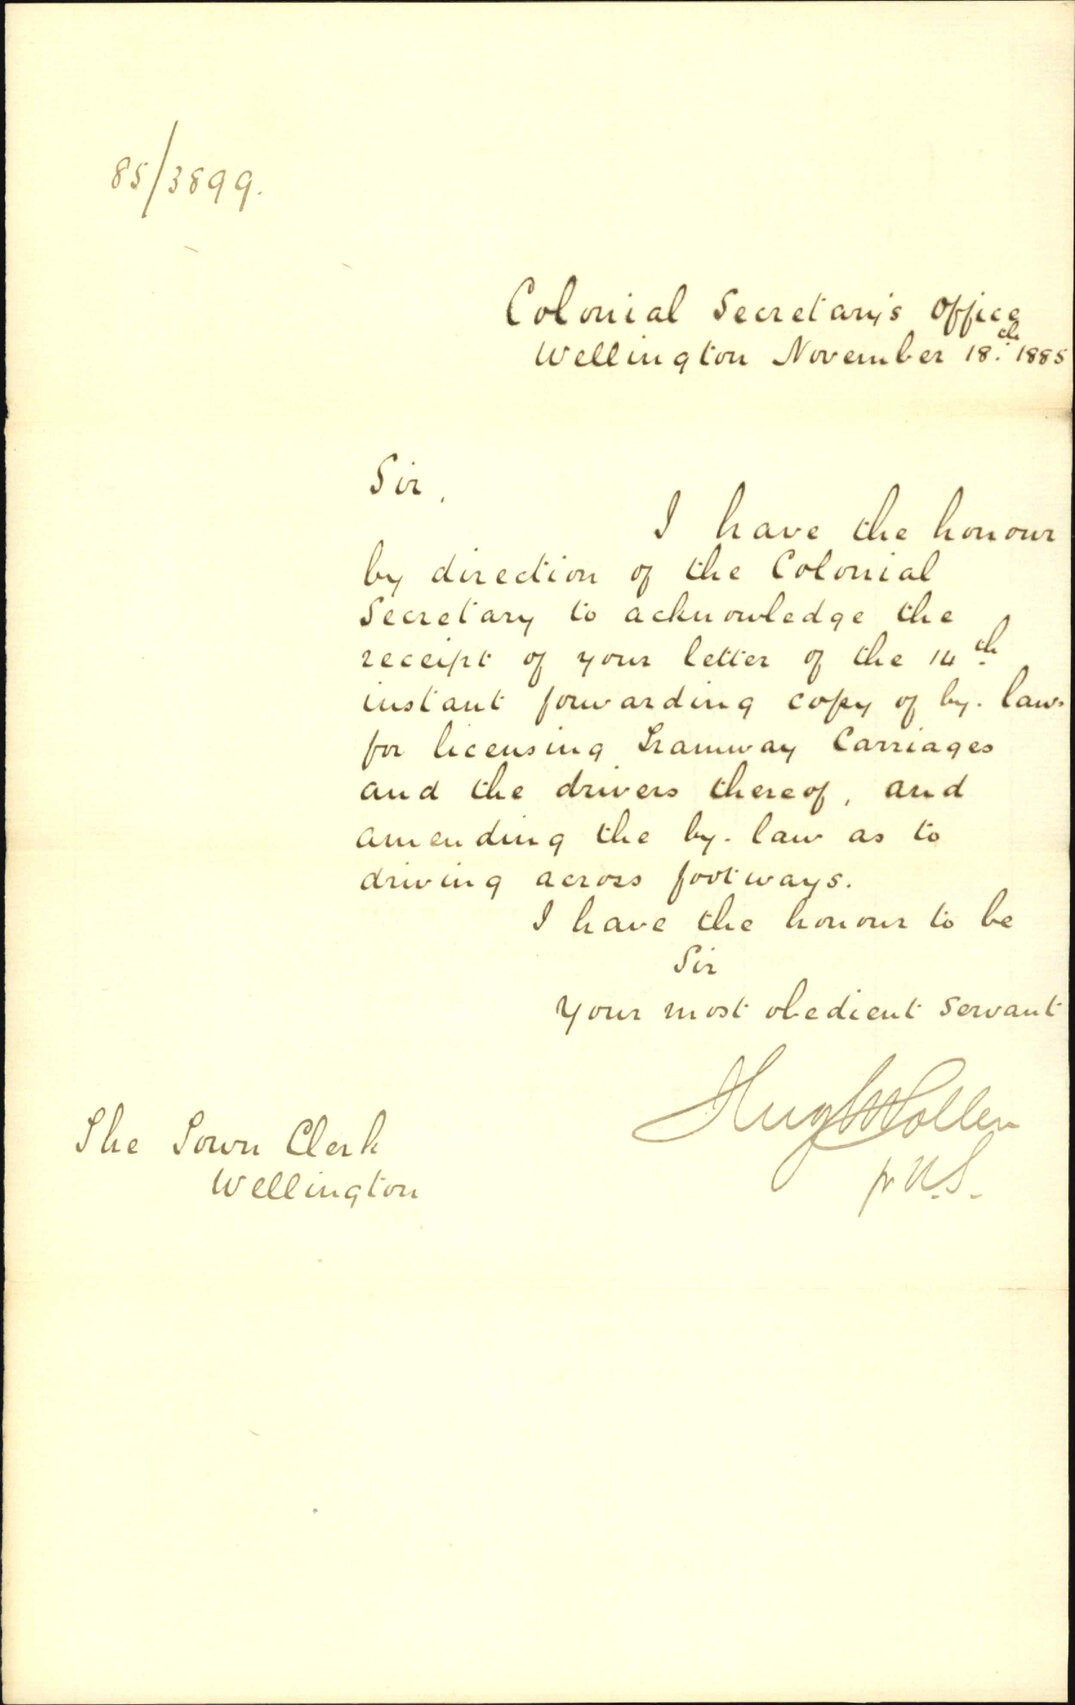 85/3899.
Colonial Secretary's Office
Wellington November 18.th 1885
Sir,
I have the honour
by direction of the Colonial
Secretary to acknowledge the
receipt of your letter of the 14th
instant forwarding copy of by-laws
for licensing Tramway Carriages
and the drivers thereof, and
amending the by-law as to
driving across footways.
I have the honour to be
Sir
Your most obedient servant
Hugh Pollen
pr U.S.
The Town Clerk
Wellington